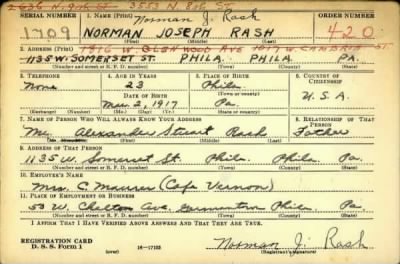 2636 N. 9th ST 3553 N. 8th ST
SERIAL NUMBER 1. NAME (Print) Norman J. Rash ORDER NUMBER
1709 NORMAN JOSEPH RASH 420
(First) (Middle) (Last)
2. ADDRESS (Print) 1916 W. GLENWOOD AVE 1017 W. CAMBRIA ST.
1135 W. SOMERSET ST. PHILA. PHILA. PA.
(Number and street or R. F. D. number) (Town) (County) (State)
3. TELEPHONE 4. AGE IN YEARS 5. PLACE OF BIRTH 6. COUNTRY OF CITIZENSHIP
None 23 Phila.
DATE OF BIRTH
Mar. 2, 1917 Pa. U.S.A.
(Exchange) (Number) (Mo.) (Day) (Yr.) (State or country)
7. NAME OF PERSON WHO WILL ALWAYS KNOW YOUR ADDRESS 8. RELATIONSHIP OF THAT PERSON
Mr. Alexander Stuart Rash Father
(First) (Middle) (Last)
9. ADDRESS OF THAT PERSON
1135 W. Somerset St. Phila. Phila. Pa.
(Number and street or R. F. D. number) (Town) (County) (State)
10. EMPLOYER'S NAME
Mrs. C. Maurer (Cafe Vernon)
11. PLACE OF EMPLOYMENT OR BUSINESS
53 W. Chelten Ave. Germantown Phila. Pa.
(Number and street or R. F. D. number) (Town) (County) (State)
I AFFIRM THAT I HAVE VERIFIED ABOVE ANSWERS AND THAT THEY ARE TRUE.
REGISTRATION CARD
D. S. S. Form 1 (over) Norman J. Rash
(Registrant's signature)